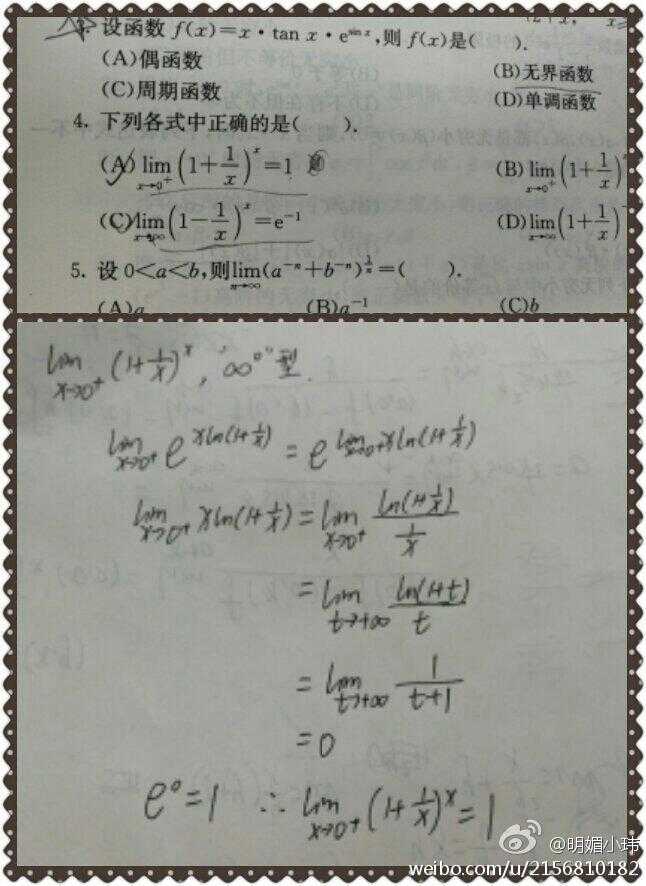 3. 设函数 f(x)=x·tan x·e^{sin x},则 f(x)是( ).
(A)偶函数 (B)无界函数
(C)周期函数 (D)单调函数
4. 下列各式中正确的是( ).
(A) lim_{x→0⁺} (1+1/x)^x=1 (B) lim_{x→0⁺} (1+1/x)
(C) lim_{x→∞} (1-1/x)^x=e^{-1} (D) lim_{x→∞} (1+1/x)
5. 设 0<a<b,则 lim_{n→∞} (a^{-n}+b^{-n})^{1/n}=( ).
(A)a (B)a^{-1} (C)b
lim_{x→0⁺} (1+1/x)^x, "∞⁰"型.
lim_{x→0⁺} e^{xln(1+1/x)} = e^{lim_{x→0⁺} xln(1+1/x)}
lim_{x→0⁺} xln(1+1/x) = lim_{x→0⁺} ln(1+1/x)/(1/x)
= lim_{t→+∞} ln(1+t)/t
= lim_{t→+∞} 1/(t+1)
= 0
e⁰=1 ∴ lim_{x→0⁺} (1+1/x)^x = 1
@明媚小玮
weibo.com/u/2156810182